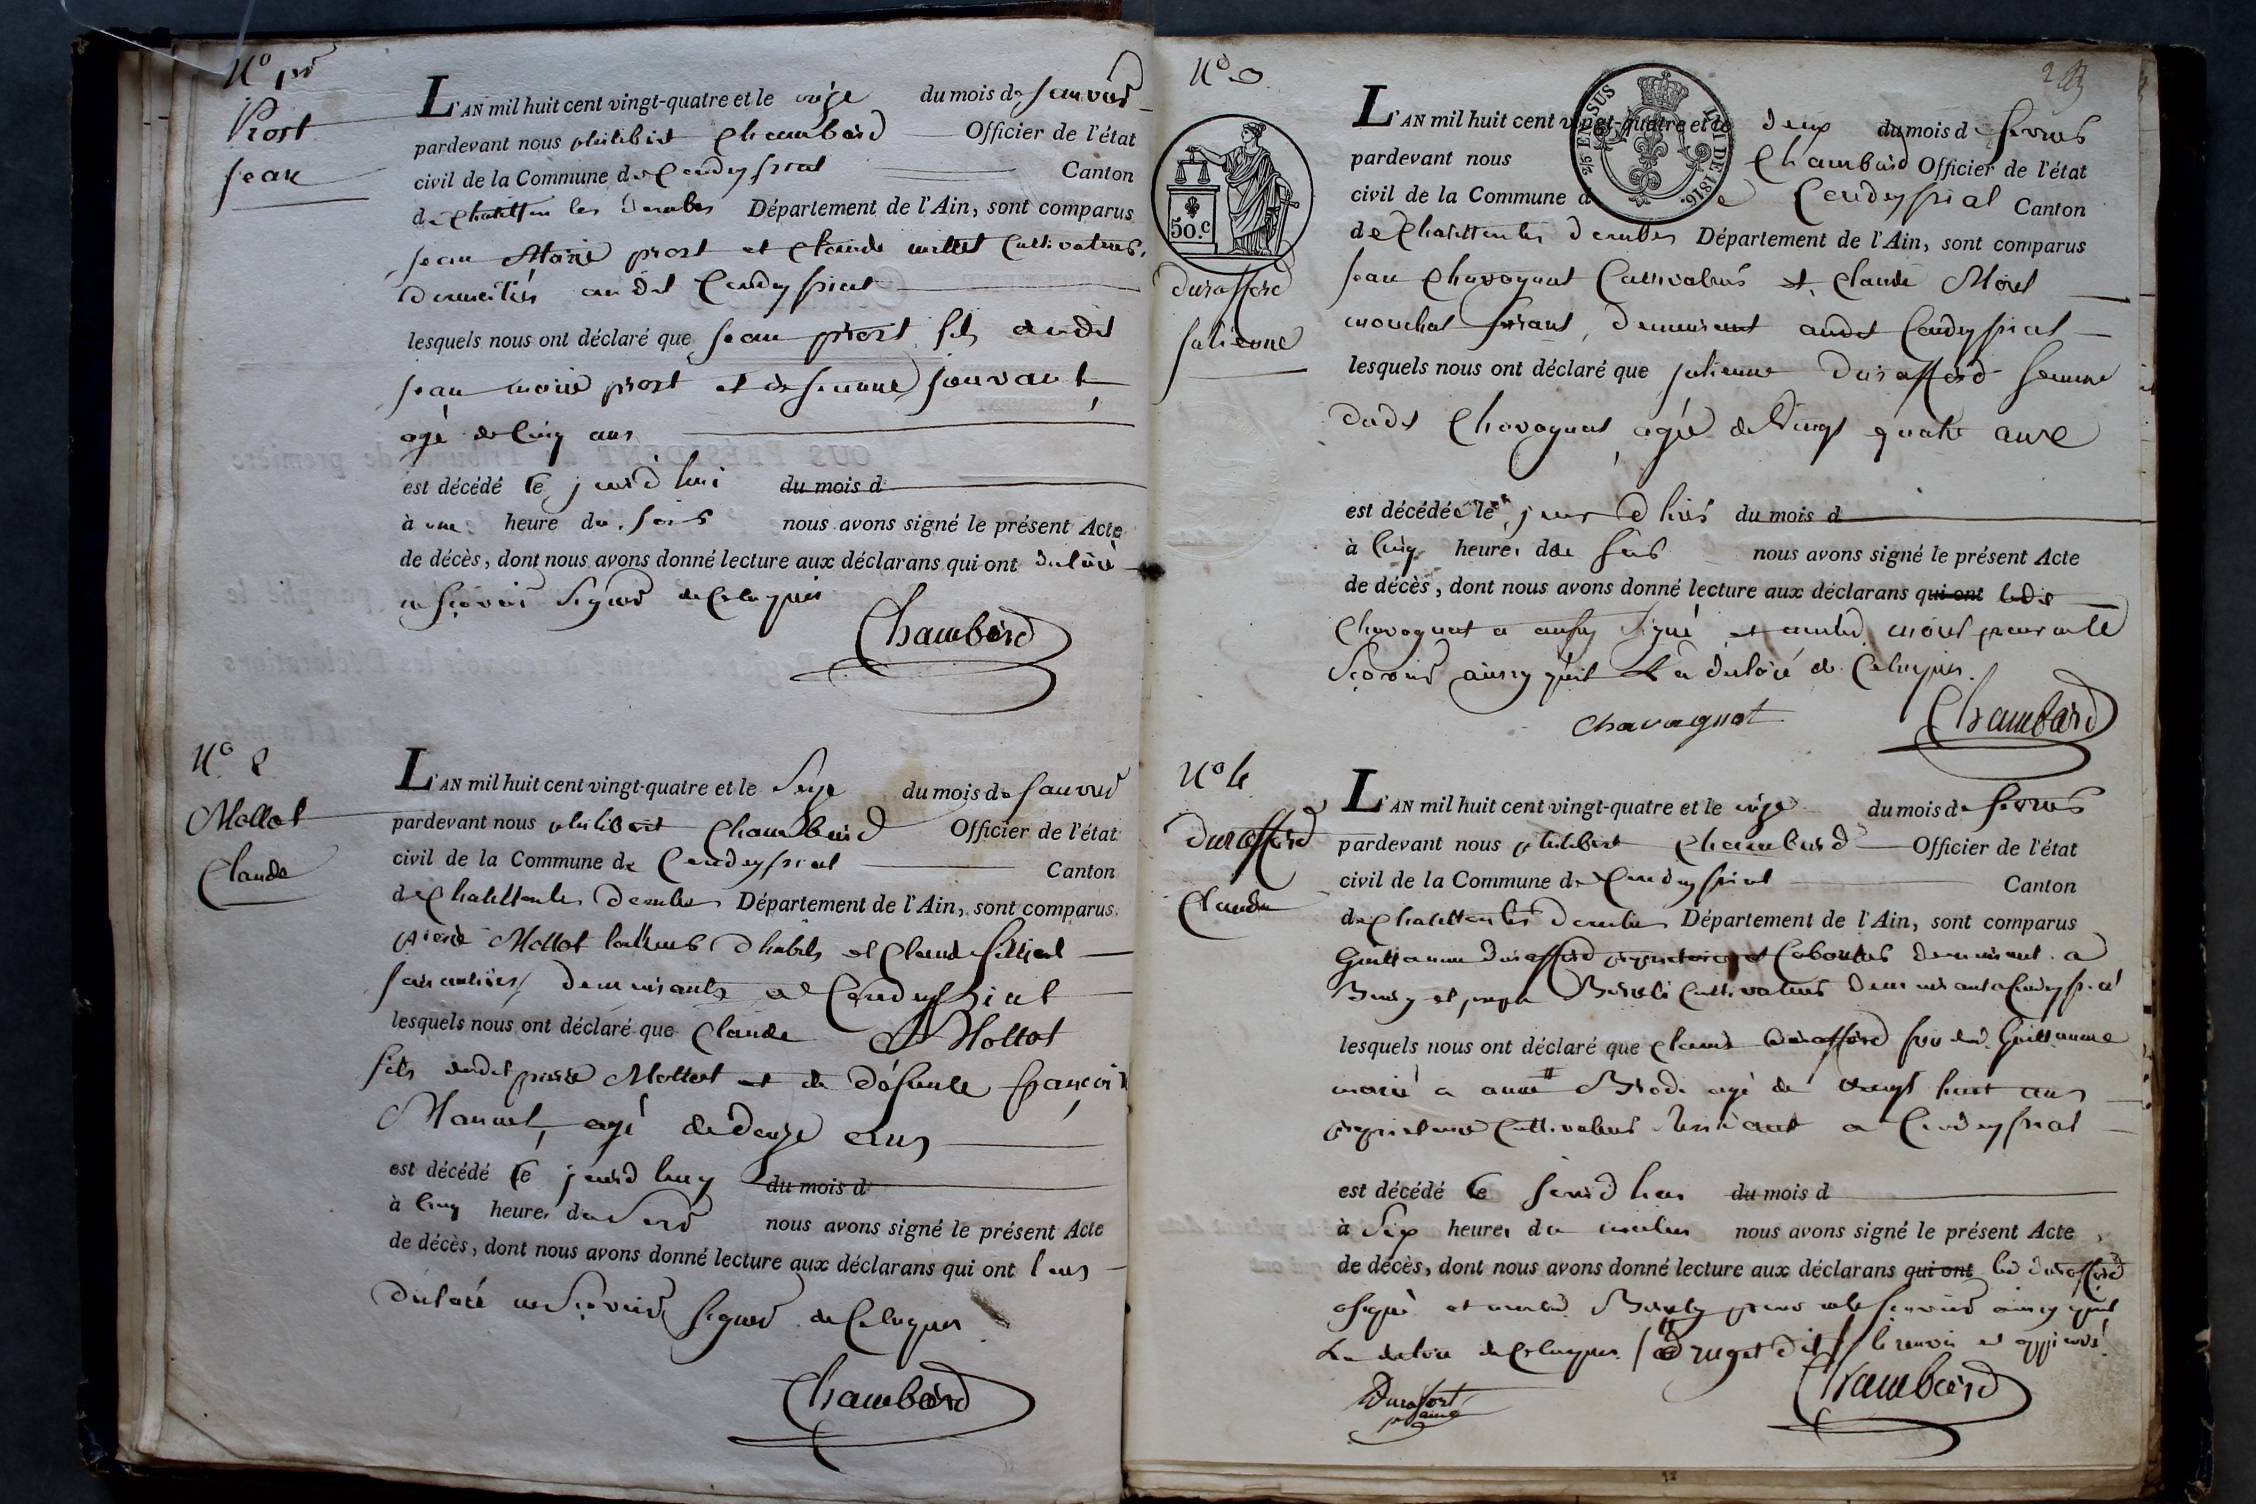 N° 1er
Prost
Jean
L'AN mil huit cent vingt-quatre et le onze du mois de Janvier
pardevant nous philibert Chambard Officier de l'état
civil de la Commune de Condeyssiat Canton
de Chatillon les Dombes Département de l'Ain, sont comparus
Jean Marie prost et Claude millet Cultivateurs,
domiciliés audit Condeyssiat
lesquels nous ont déclaré que Jean prost fils dudit
Jean marie prost et de
agé de Cinq ans
est décédé le jourd'hui du mois d
à une heure du soir nous avons signé le présent Acte
de décès, dont nous avons donné lecture aux déclarans qui ont déclaré
ne sçavoir signer de Ce Enquis
Chambard
N° 2
Mollot
Claude
L'AN mil huit cent vingt-quatre et le Seize du mois de Janvier
pardevant nous philibert Chambard Officier de l'état
civil de la Commune de Condeyssiat Canton
de Chatillon les Dombes Département de l'Ain, sont comparus
pierre Mollot tailleur d'habits et Claude
demeurants a Condeyssiat
lesquels nous ont déclaré que Claude Mollot
fils dudit pierre Mollot et de défunte françoise
agé de douze ans
est décédé le jourd'huy du mois d
à Cinq heures du Soir nous avons signé le présent Acte
de décès, dont nous avons donné lecture aux déclarans qui ont tous
déclaré ne Sçavoir signer de Ce Enquis
Chambard
N° 3
2
2/5 EN SUS
LOI DE 1816.
50.c
durafford
Julienne
L'AN mil huit cent vingt-quatre et le deux du mois de fevrier
pardevant nous Chambard Officier de l'état
civil de la Commune de Condeyssiat Canton
de Chatillon les Dombes Département de l'Ain, sont comparus
Jean Chavagnat Cultivateur et Claude Morel
demeurant audit Condeyssiat
lesquels nous ont déclaré que Julienne Durafford femme
dudit Chavagnat, agée de Vingt quatre ans
est décédée le jourd'hui du mois d
à Cinq heures du soir nous avons signé le présent Acte
de décès, dont nous avons donné lecture aux déclarans qui ont ledit
Chavagnat a aussy signé et non led. morel pour ne le
Sçavoir ainsy qu'il L'a déclaré de Ce Enquis.
Chavagnat
Chambard
N° 4
Durafford
Claude
L'AN mil huit cent vingt-quatre et le onze du mois de fevrier
pardevant nous philibert Chambard Officier de l'état
civil de la Commune de Condeyssiat Canton
de Chatillon les Dombes Département de l'Ain, sont comparus
Guillaume Durafford proprietaire et Laboureur demeurant a
et joseph Cultivateur demeurant a Condeyssiat
lesquels nous ont déclaré que Claude Durafford feu Guillaume
marié a anne Brodi agé de vingt huit ans
proprietaire Cultivateur residant a Condeyssiat
est décédé le jourd'hui du mois d
à Six heures du matin nous avons signé le présent Acte
de décès, dont nous avons donné lecture aux déclarans qui ont led. Durafford
a signé et non led. pour ne le sçavoir ainsy qu'il
La déclaré de Ce Enquis le renvoi est approuvé
Durafort
ainé
Chambard